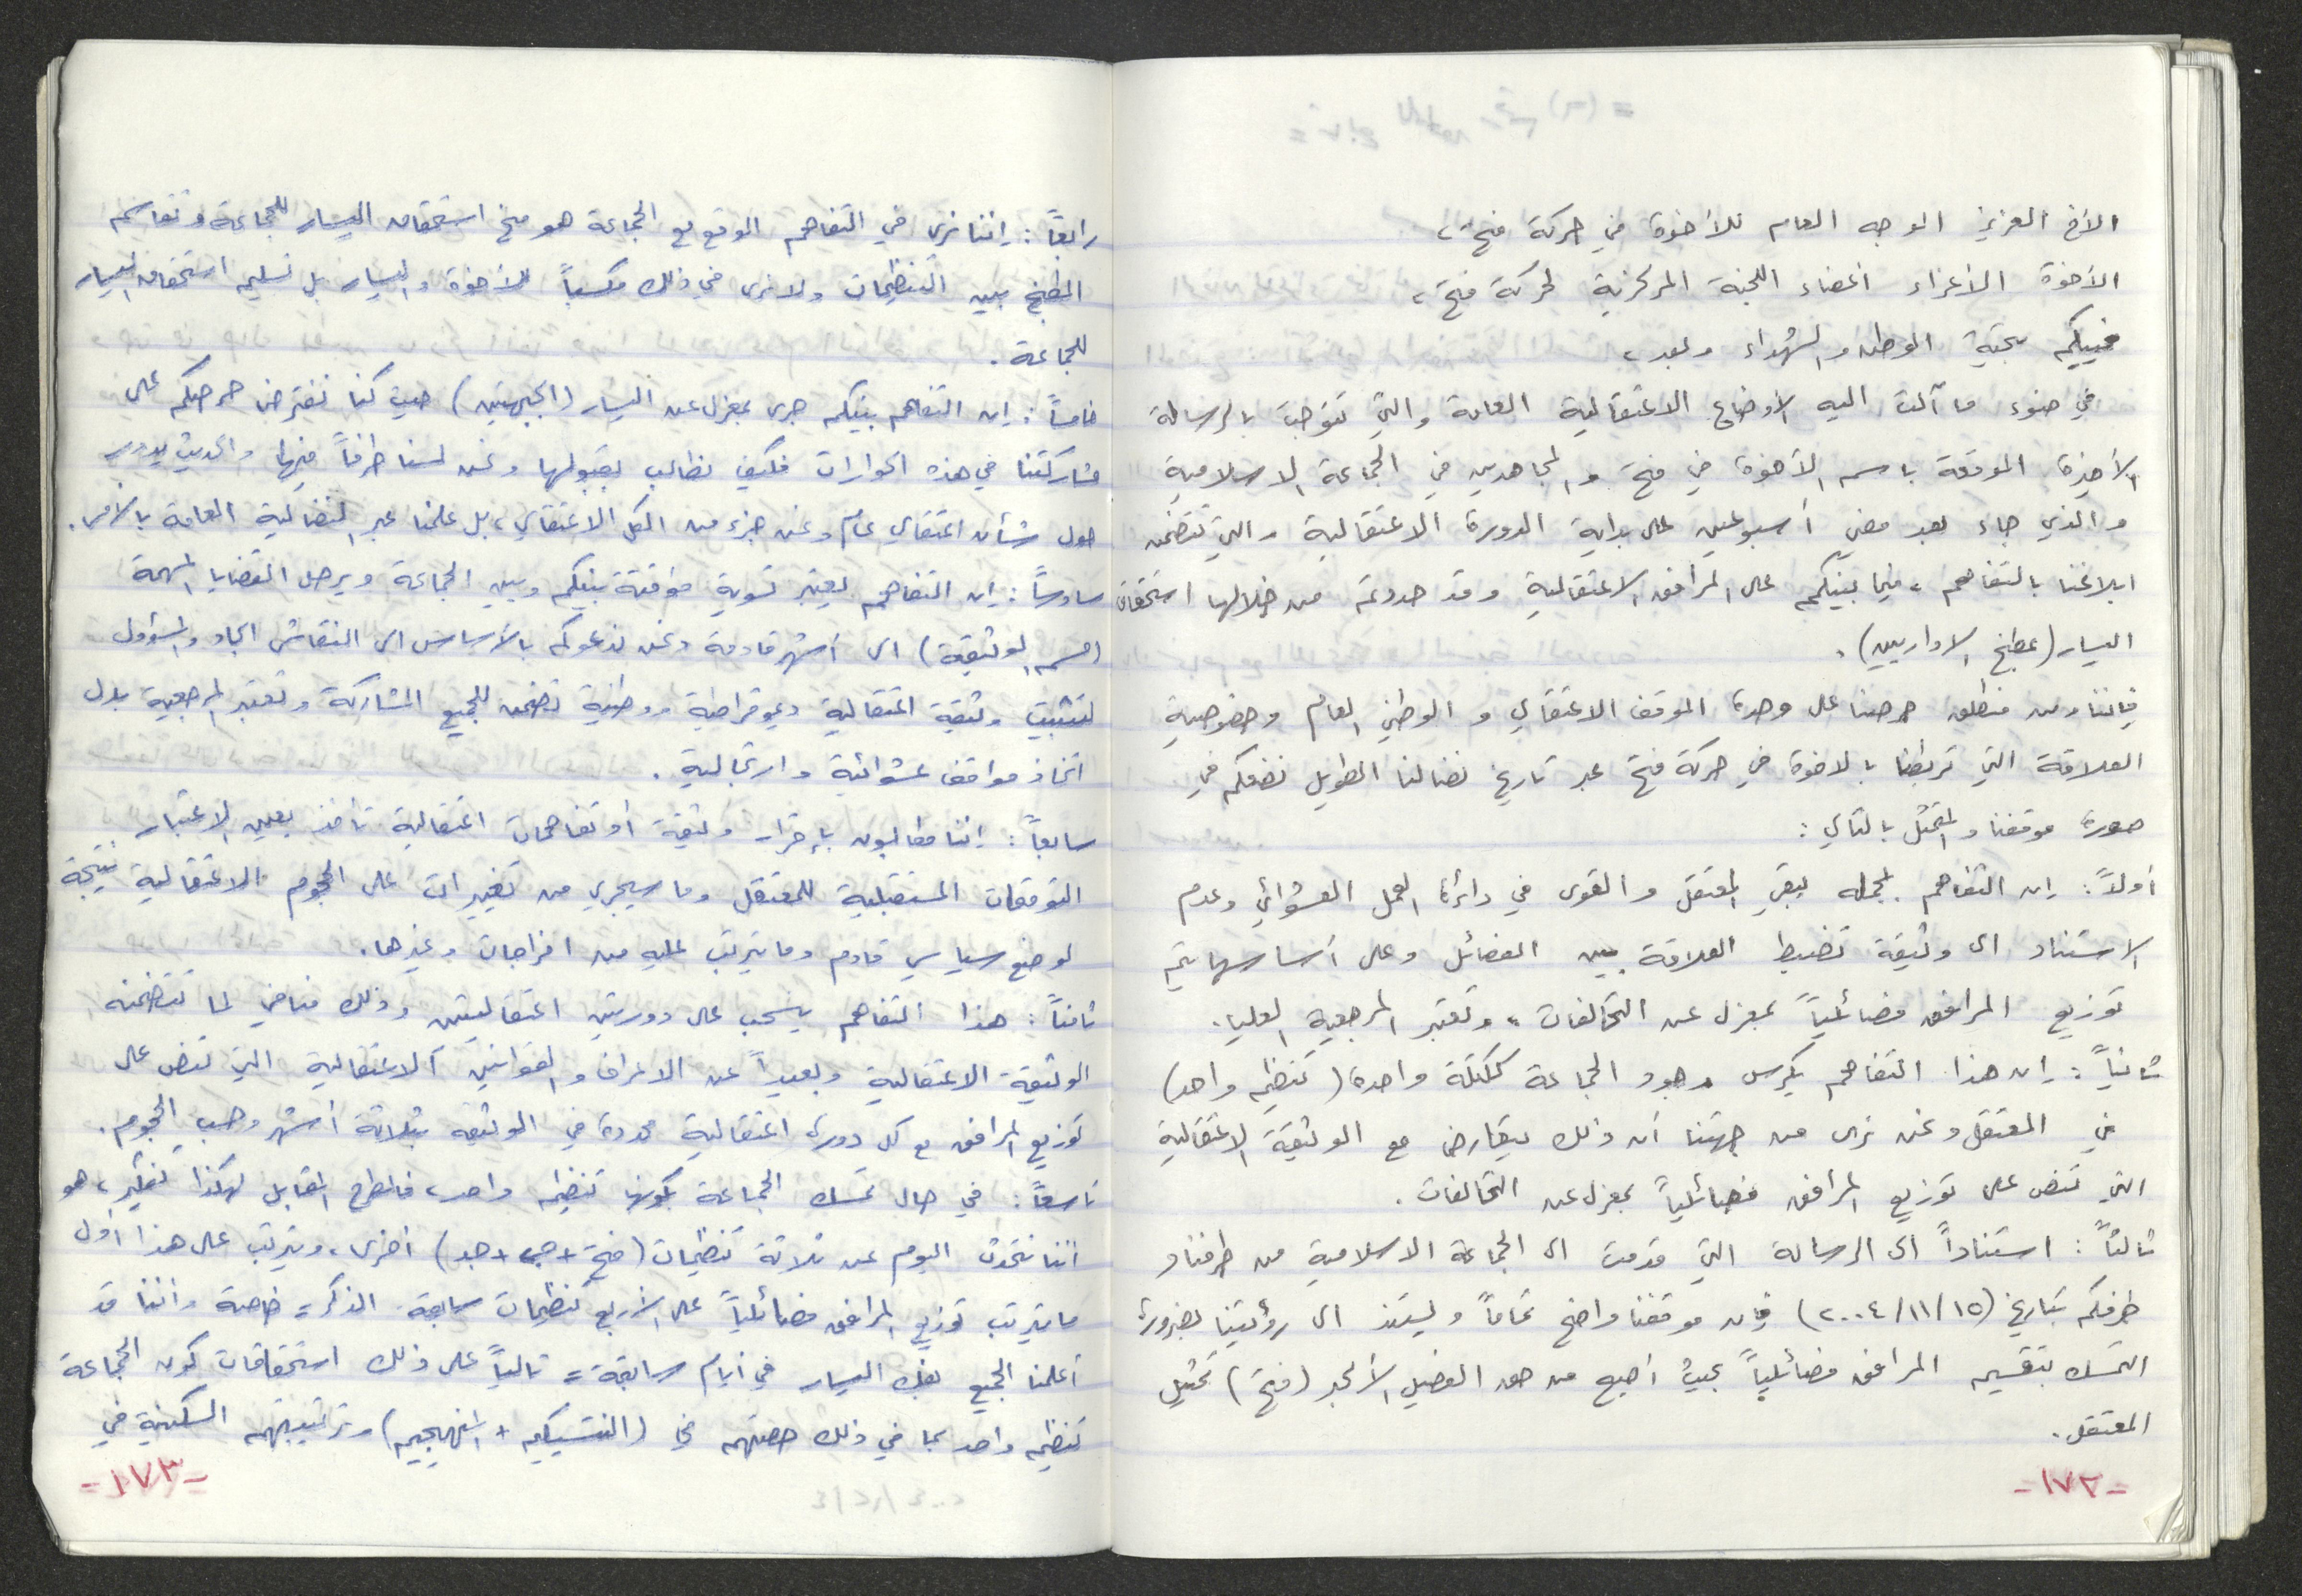 الأخ العزيز الموجه العام للأخوة في حركة فتح،
الأخوة الأعزاء أعضاء اللجنة المركزية لحركة فتح،
نحييكم بتحية الوطن والشهداء وبعد،
في ضوء ما آلت اليه الأوضاع الاعتقالية العامة والتي تتوجت بالرسالة
الأخيرة الموقعة باسم الأخوة في فتح والمجاهدين في الجماعة الاسلامية
والذي جاء بعد مضي أسبوعين على بداية الدورة الاعتقالية والتي تتضمن
ابلاغنا بالتفاهم، فيما بينكم على المرافق الاعتقالية وقد حددتم من خلالها استحقاق
اليسار (بمطبخ الاداريين).
فإننا ومن منطلق حرصنا على وحدة الموقف الاعتقالي والوطني العام وخصوصية
العلاقة التي تربطنا بالاخوة في حركة فتح عبر تاريخ نضالنا الطويل نضعكم في
صورة موقفنا والمتمثل بالتالي:
أولاً: إن التفاهم بمجمله يبقي المعتقل والقوى في دائرة العمل العشوائي وعدم
الاستناد الى وثيقة تضبط العلاقة بين الفصائل وعلى أساسها يتم
توزيع المرافق فصائلياً بمعزل عن التحالفات، وتعتبر المرجعية العليا.
ثانياً: إن هذا التفاهم يكرس وجود الجماعة ككتلة واحدة (كتنظيم واحد)
في المعتقل ونحن نرى من جهتنا أن ذلك يتعارض مع الوثيقة الاعتقالية
التي تنص على توزيع المرافق فصائلياً بمعزل عن التحالفات.
ثالثاً: استناداً الى الرسالة التي قدمت الى الجماعة الاسلامية من طرفنا و
طرفكم بتاريخ (١٥/١١/٢٠٠٤) فإن موقفنا واضح تماماً ويستند الى رؤيتنا بضرورة
التمسك بتقسيم المرافق فصائلياً بحيث أصبح من حق الفصيل الأكبر (فتح) تمثيل
المعتقل.
-١٧٢-
رابعاً: إننا نرى في التفاهم الموقع مع الجماعة هو منح استحقاق اليسار للجماعة وتقاسم
المطبخ بين التنظيمات ولا نرى في ذلك مكسباً للأخوة واليسار بل تسليم استحقاق اليسار
للجماعة.
خامساً: إن التفاهم بينكم جرى بمعزل عن اليسار (الجبهتين) حيث كنا نفترض حرصكم على
مشاركتنا في هذه الحوارات فكيف نطالب بقبولها ونحن لسنا طرفاً فيها والحديث يدور
حول شأن اعتقالي عام ونحن جزء من الكل الاعتقالي، بل علمنا عبر النضالية العامة بالأمر.
سادساً: إن التفاهم يعتبر تسوية مؤقتة بينكم وبين الجماعة ويرحل القضايا المهمة
(حسم الوثيقة) الى أشهر قادمة ونحن ندعوكم بالأساس الى النقاش الجاد والمسؤول
لتثبيت وثيقة اعتقالية ديموقراطية ووطنية تضمن للجميع المشاركة وتعتبر المرجعية بدل
اتخاذ مواقف عشوائية وارتجالية.
سابعاً: إننا مطالبون بإقرار وثيقة أو تفاهمات اعتقالية تأخذ بعين الاعتبار
التوقعات المستقبلية للمعتقل وما سيجري من تغييرات على الحجوم الاعتقالية نتيجة
لوضع سياسي قادم وما يترتب عليه من افراجات وغيرها.
ثامناً: هذا التفاهم ينسحب على دورتين اعتقاليتين وذلك منافي لما تتضمنه
الوثيقة الاعتقالية وبعيداً عن الاعراف والقوانين الاعتقالية التي تنص على
توزيع المرافق مع كل دورة اعتقالية محددة في الوثيقة بثلاثة أشهر وحسب الحجوم.
تاسعاً: في حال تمسك الجماعة بكونها تنظيم واحد، فالطرح المقابل لهكذا تفكير، هو
أننا نتحدث اليوم عن ثلاثة تنظيمات (فتح + جب + جد) أخرى، ويترتب على هذا أول
ما يترتب توزيع المرافق فصائلياً على الأربع تنظيمات سابقة الذكر= خاصة وأننا قد
أعلمنا الجميع بفك اليسار في أيام سابقة= تالياً على ذلك استحقاقات كون الجماعة
تنظيم واحد بما في ذلك حصتهم في وترتيبهم السكنية في
-١٧٣-